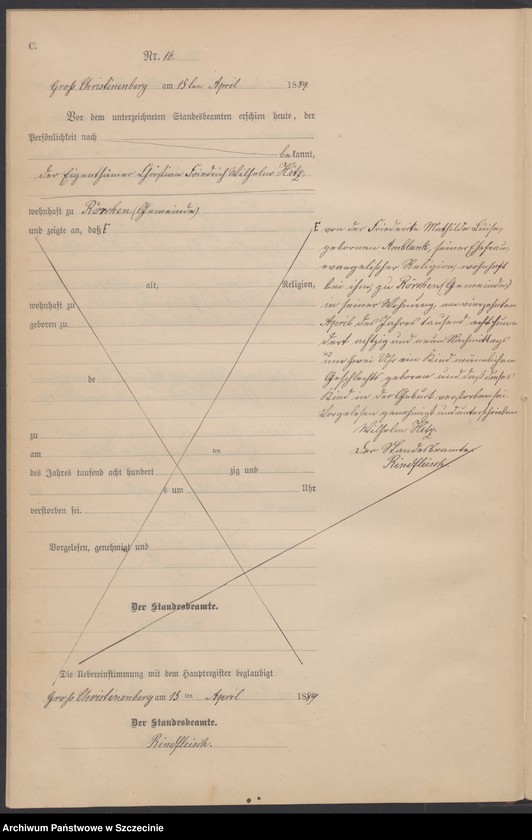 C.
Nr. 16.
Groß Christinenberg am 15ten April 1889.
Vor dem unterzeichneten Standesbeamten erschien heute, der
Persönlichkeit nach
bekannt,
der Eigenthümer Christian Friedrich Wilhelm Hitz,
wohnhaft zu Rörchen (Gemeinde)
und zeigte an, daß F
alt, Religion,
wohnhaft zu
geboren zu
de
zu
am ten
des Jahres tausend acht hundert zig und
s um Uhr
verstorben sei.
Vorgelesen, genehmigt und
Der Standesbeamte.
F von der Friederike Mathilde Luise,
gebornen Amblank, seiner Ehefrau,
evangelischer Religion, wohnhaft
bei ihm, zu Rörchen (Gemeinde)
in seiner Wohnung, am vierzehnten
April des Jahres tausend acht hun-
dert achtzig und neun Nachmittags
um zwei Uhr ein Kind männlichen
Geschlechts geboren und daß dieses
Kind in der Geburt verstorben sei.
Vorgelesen genehmigt und unterschrieben
Wilhelm Hitz.
Der Standesbeamte
Rindfleisch.
Die Uebereinstimmung mit dem Hauptregister beglaubigt
Groß Christinenberg am 15 ten April 1889
Der Standesbeamte.
Rindfleisch.
Archiwum Państwowe w Szczecinie